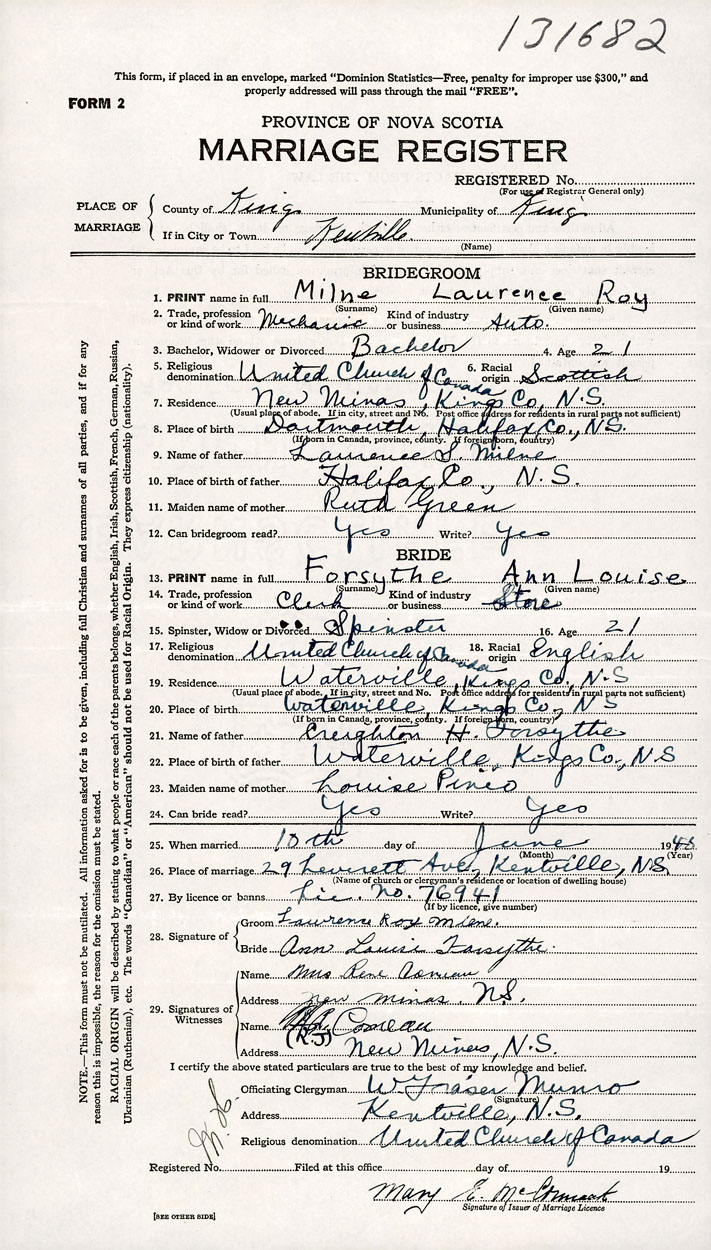 131682
This form, if placed in an envelope, marked "Dominion Statistics—Free, penalty for improper use $300," and
properly addressed will pass through the mail "FREE".
FORM 2
PROVINCE OF NOVA SCOTIA
MARRIAGE REGISTER
REGISTERED No.
(For use of Registrar General only)
PLACE OF MARRIAGE
County of Kings Municipality of Kings
If in City or Town Kentville
(Name)
BRIDEGROOM
1. PRINT name in full Milne Laurence Roy
(Surname) (Given name)
2. Trade, profession or kind of work Mechanic Kind of industry or business Auto.
3. Bachelor, Widower or Divorced Bachelor 4. Age 21
5. Religious denomination United Church of Canada 6. Racial origin Scottish
7. Residence New Minas, Kings Co., N.S.
(Usual place of abode. If in city, street and No. Post office address for residents in rural parts not sufficient)
8. Place of birth Dartmouth, Halifax Co., N.S.
(If born in Canada, province, county. If foreign born, country)
9. Name of father Laurence S. Milne
10. Place of birth of father Halifax Co., N.S.
11. Maiden name of mother Ruth Green
12. Can bridegroom read? Yes Write? Yes
BRIDE
13. PRINT name in full Forsythe Ann Louise
(Surname) (Given name)
14. Trade, profession or kind of work Clerk Kind of industry or business Store
15. Spinster, Widow or Divorced Spinster 16. Age 21
17. Religious denomination United Church of Canada 18. Racial origin English
19. Residence Waterville, Kings Co., N.S
(Usual place of abode. If in city, street and No. Post office address for residents in rural parts not sufficient)
20. Place of birth Waterville, Kings Co., N S
(If born in Canada, province, county. If foreign born, country)
21. Name of father Creighton H. Forsythe
22. Place of birth of father Waterville, Kings Co., N.S
23. Maiden name of mother Louise Pineo
24. Can bride read? Yes Write? Yes
25. When married 10th day of June 1948
(Month) (Year)
26. Place of marriage 29 Leverett Ave., Kentville, N.S.
(Name of church or clergyman's residence or location of dwelling house)
27. By licence or banns Lic. No. 76941
(If by licence, give number)
28. Signature of
Groom Lawrence Roy Milne.
Bride Ann Louise Forsythe.
29. Signatures of Witnesses
Name Mrs Rene Comeau
Address New Minas. N.S.
Name Comeau
(R.J)
Address New Minas, N.S.
I certify the above stated particulars are true to the best of my knowledge and belief.
Officiating Clergyman W. Fraser Munro
(Signature)
Address Kentville, N.S.
Religious denomination United Church of Canada
Registered No. Filed at this office day of 19
Mary E. McCormack
Signature of Issuer of Marriage Licence
[SEE OTHER SIDE]
NOTE.—This form must not be mutilated. All information asked for is to be given, including full Christian and surnames of all parties, and if for any
reason this is impossible, the reason for the omission must be stated.
RACIAL ORIGIN will be described by stating to what people or race each of the parents belongs, whether English, Irish, Scottish, French, German, Russian,
Ukrainian (Ruthenian), etc. The words "Canadian" or "American" should not be used for Racial Origin. They express citizenship (nationality).